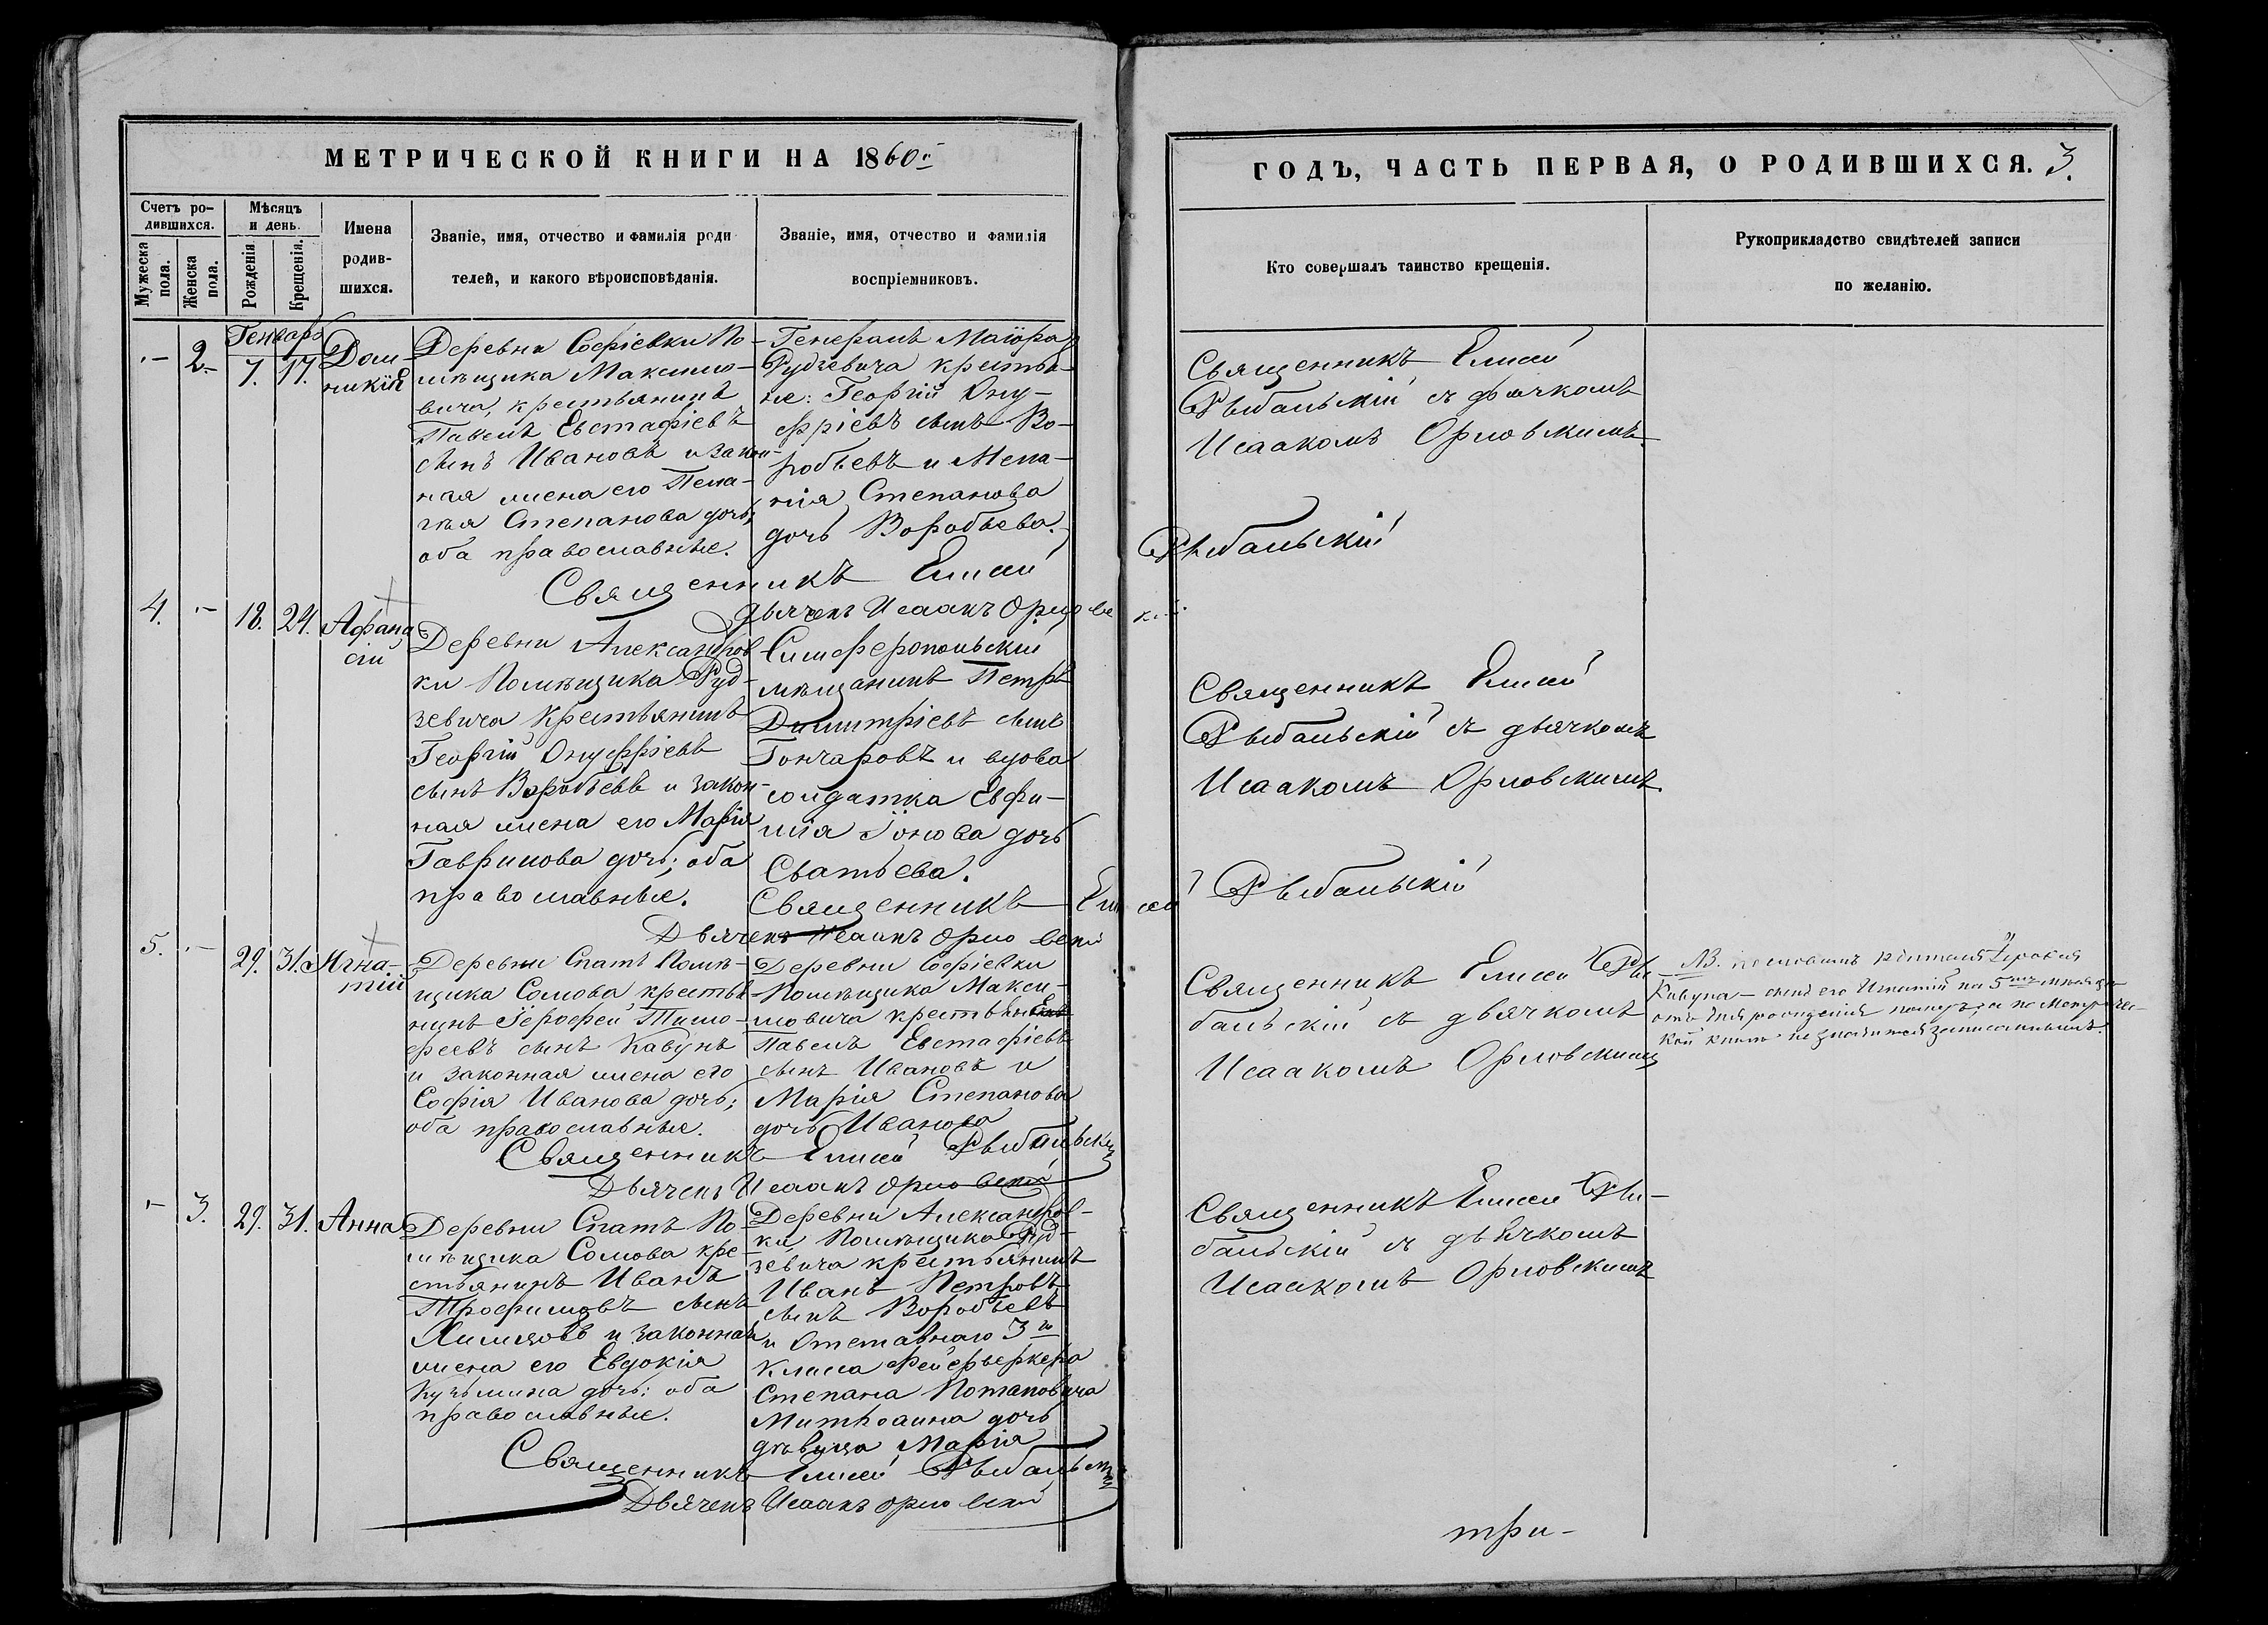 МЕТРИЧЕСКОЙ КНИГИ НА 1860й
Счетъ ро-
дившихся.
Мужеска
пола.
Женска
пола.
Мѣсяцъ
и день.
Рожденія
Крещенія.
Имена
родив-
шихся.
Званіе, имя, отчество и фамилія роди
телей, и какого вѣроисповѣданія.
Званіе, имя, отчество и фамилія
воспріемниковъ.
Генварь
— 2. 7. 17.
Дом-
никія
Деревни Софіевки По-
мѣщика Максимо-
вича, крестьянинъ
Павелъ Евстафіевъ
сынъ Ивановъ и закон-
ная жена его Пела-
гія Степанова дочь;
оба православные.
Генералъ Маіора
Рудзевича крестья-
не: Георгій Ону-
фріевъ сынъ Во-
робьевъ и Мела-
нія Степанова
дочь Воробьева.
Священникъ Елисей Рыбальскій
Дьячекъ Исаакъ Орловскій
4. — 18. 24.
Афана
сій
Деревни Александров
ки Помѣщика Руд-
зевича крестьянинъ
Георгій Онуфріевъ
сынъ Воробьевъ и закон-
ная жена его Марія
Гаврилова дочь; оба
православные.
Симферопольскій
мѣщанинъ Петръ
Димитріевъ сынъ
Гончаровъ и вдова
солдатка Евфи-
мія Іонова дочь
Сватьева.
Священникъ Елисей Рыбальскій
Дьячекъ Исаакъ Орловскій
5. — 29. 31.
Игна-
тій
Деревни Спатъ Помѣ-
щика Сомова, крестья-
нинъ Іерофей Тимо-
феевъ сынъ Кавунъ
и законная жена его
Софія Иванова дочь;
оба православные.
Деревни Софіевки
Помѣщика Макси-
мовича крестьянинъ
Павелъ Евстафіевъ
сынъ Ивановъ и
Марія Степанова
дочь Иванова
Священникъ Елисей Рыбальскій
Дьячекъ Исаакъ Орловскій
— 3. 29. 31. Анна
Деревни Спатъ По-
мѣщика Сомова кре-
стьянинъ Иванъ
Трофимовъ сынъ
и законная
жена его Евдокія
Кузьмина дочь; оба
православные.
Деревни Александров-
ки Помѣщика Руд-
зевича крестьянинъ
Иванъ Петровъ
сынъ Воробьевъ
и Отставнаго 3го
класса Фейерверкера
Степана Потаповича
дочь
дѣвица Марія
Священникъ Елисей Рыбальскій
Дьячекъ Исаакъ Орловскій
ГОДЪ, ЧАСТЬ ПЕРВАЯ, О РОДИВШИХСЯ. 3.
Кто совершалъ таинство крещенія.
Рукоприкладство свидѣтелей записи
по желанію.
Священникъ Елисей
Рыбальскій съ дьячкомъ
Исаакомъ Орловскимъ.
Священникъ Елисей
Рыбальскій съ дьячкомъ
Исаакомъ Орловскимъ.
Священникъ Елисей Ры-
бальскій съ дьячкомъ
Исаакомъ Орловскимъ
NB. по словамъ родителя Іерофея
Кавуна — сынъ его Игнатій на 5мъ
отъ дня рожденія померъ, а по Метричес-
кой книгѣ не значится записаннымъ.
Священникъ Елисей Ры-
бальскій съ дьячкомъ
Исаакомъ Орловскимъ
три-